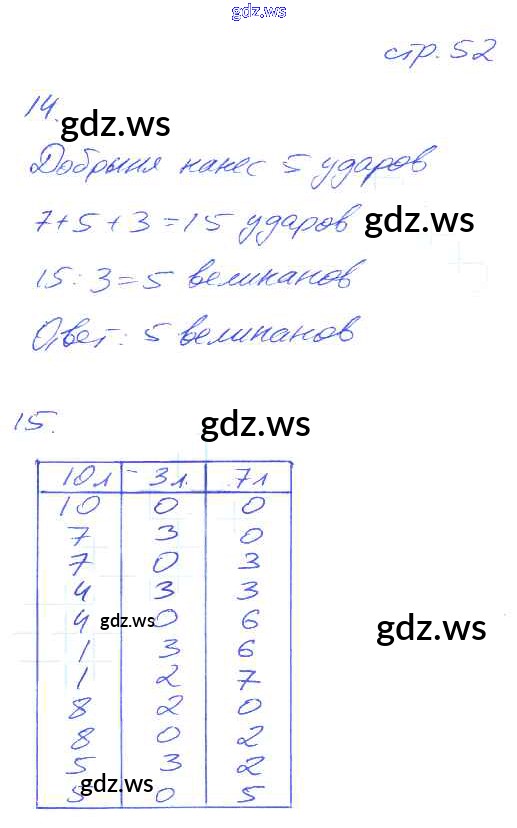 gdz.ws
стр. 52
14.
gdz.ws
Добрыня нанес 5 ударов
7+5+3=15 ударов
gdz.ws
15:3=5 великанов
Ответ: 5 великанов
15.
gdz.ws
10л 3л. 7л
10 0 0
7 3 0
7 0 3
4 3 3
4 0 6
gdz.ws
gdz.ws
1 3 6
1 2 7
8 2 0
8 0 2
5 3 2
gdz.ws
5 0 5